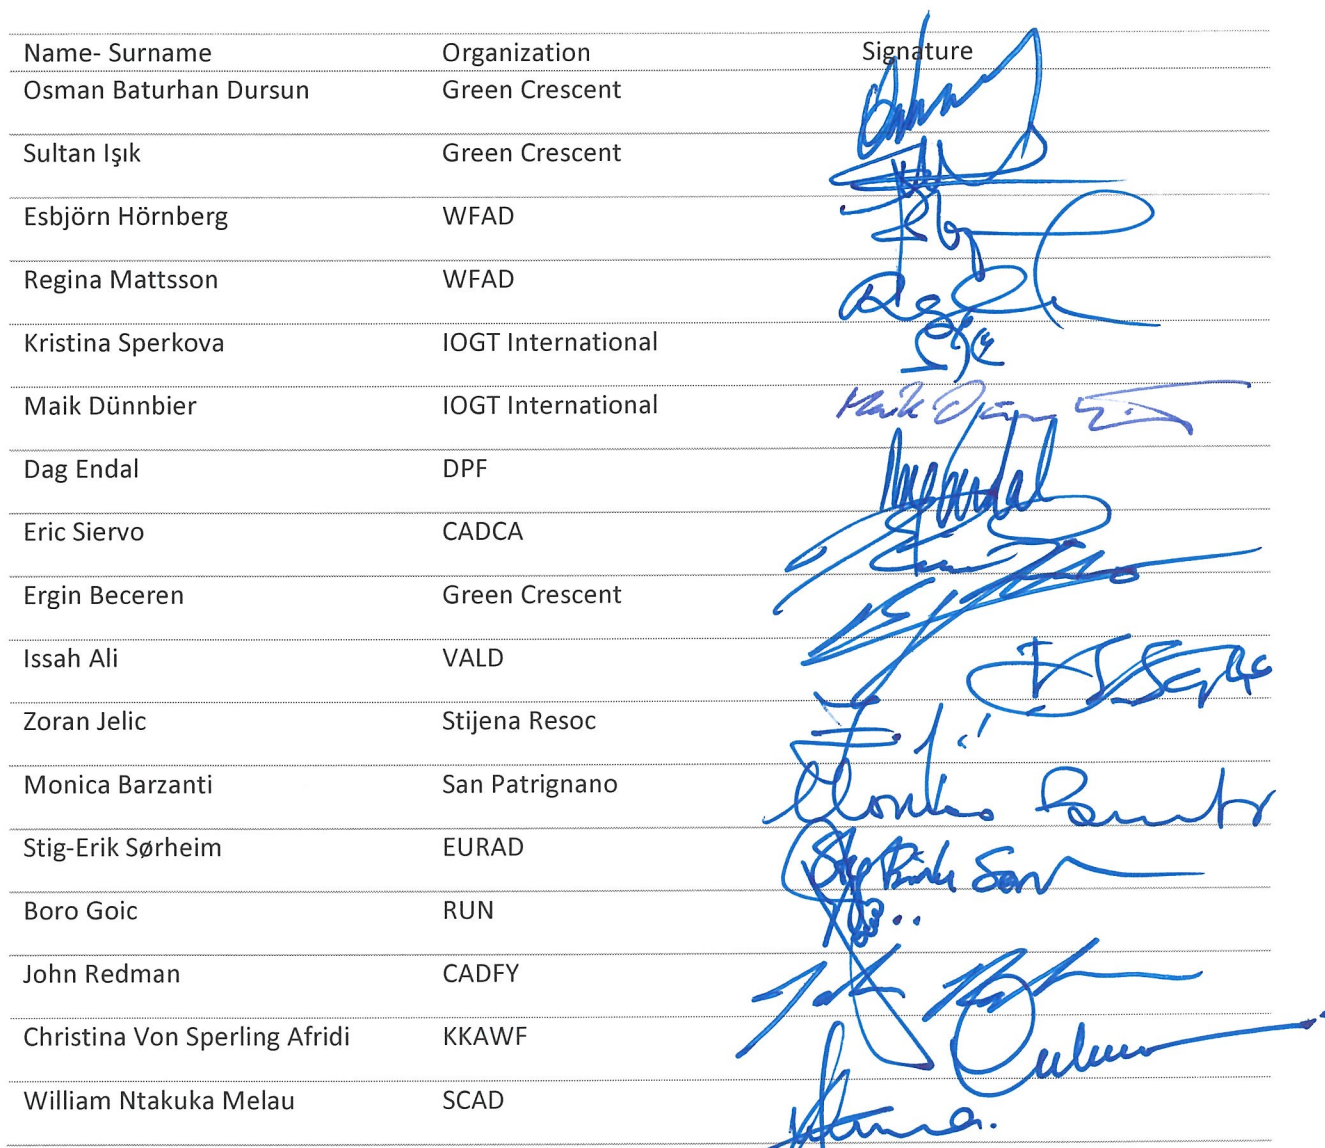 Name- Surname Organization Signature
Osman Baturhan Dursun Green Crescent
Sultan Işık Green Crescent
Esbjörn Hörnberg WFAD
Regina Mattsson WFAD
Kristina Sperkova IOGT International
Maik Dünnbier IOGT International Maik
Dag Endal DPF
Eric Siervo CADCA
Ergin Beceren Green Crescent
Issah Ali VALD
Zoran Jelic Stijena Resoc
Monica Barzanti San Patrignano
Stig-Erik Sørheim EURAD
Boro Goic RUN
John Redman CADFY
Christina Von Sperling Afridi KKAWF
William Ntakuka Melau SCAD